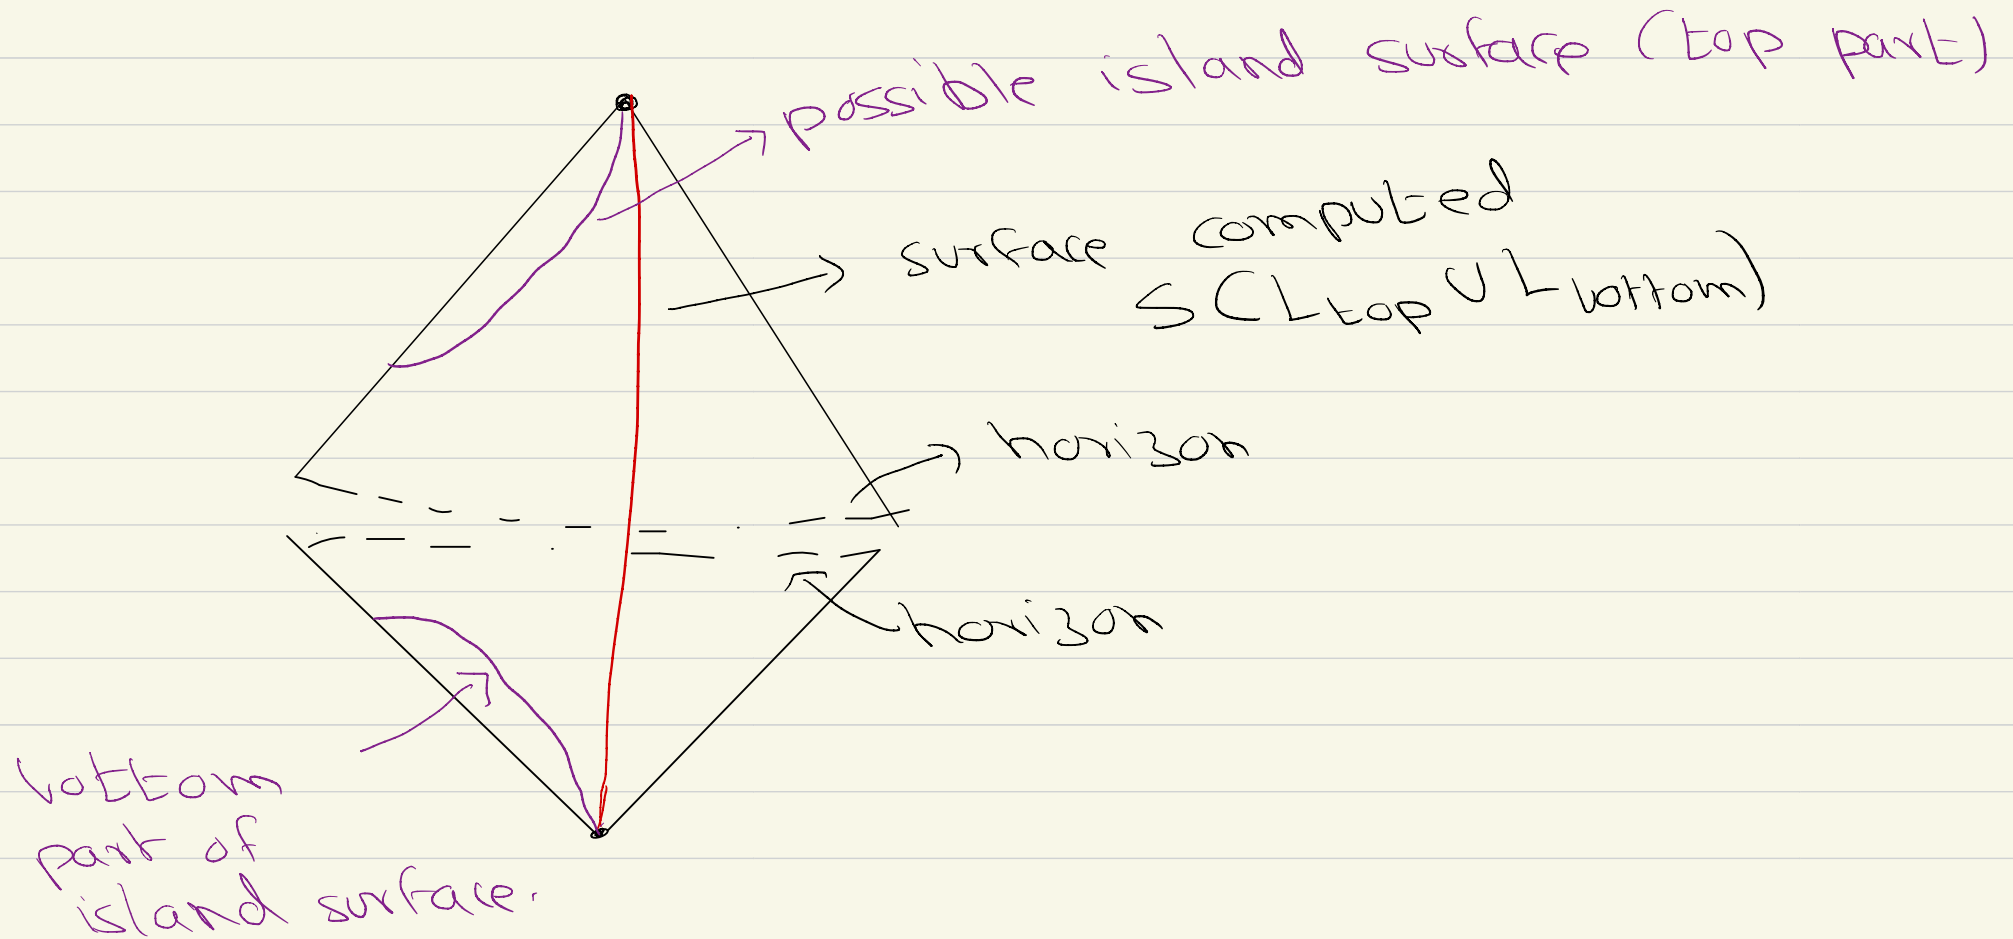 possible island surface (top part)
surface computed
S(Ltop ∪ Lbottom)
horizon
horizon
bottom
part of
island surface.